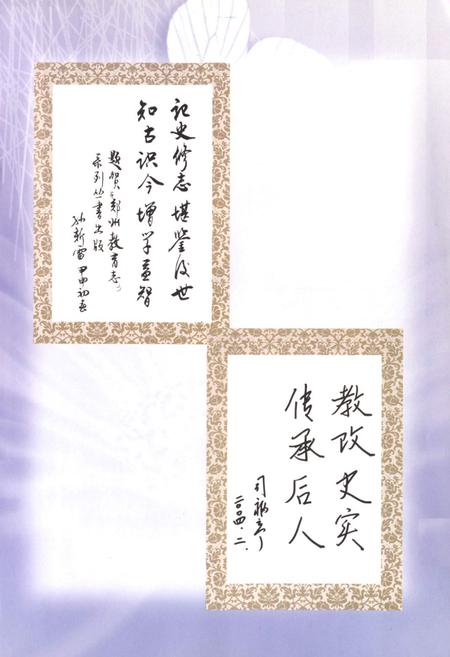 记史修志堪鉴后世
知古识今增学益智
题贺《郑州教育志》
系列丛书出版
孙新雷 甲申初春
教改史实
传承后人
司福亭
二〇〇四.二.